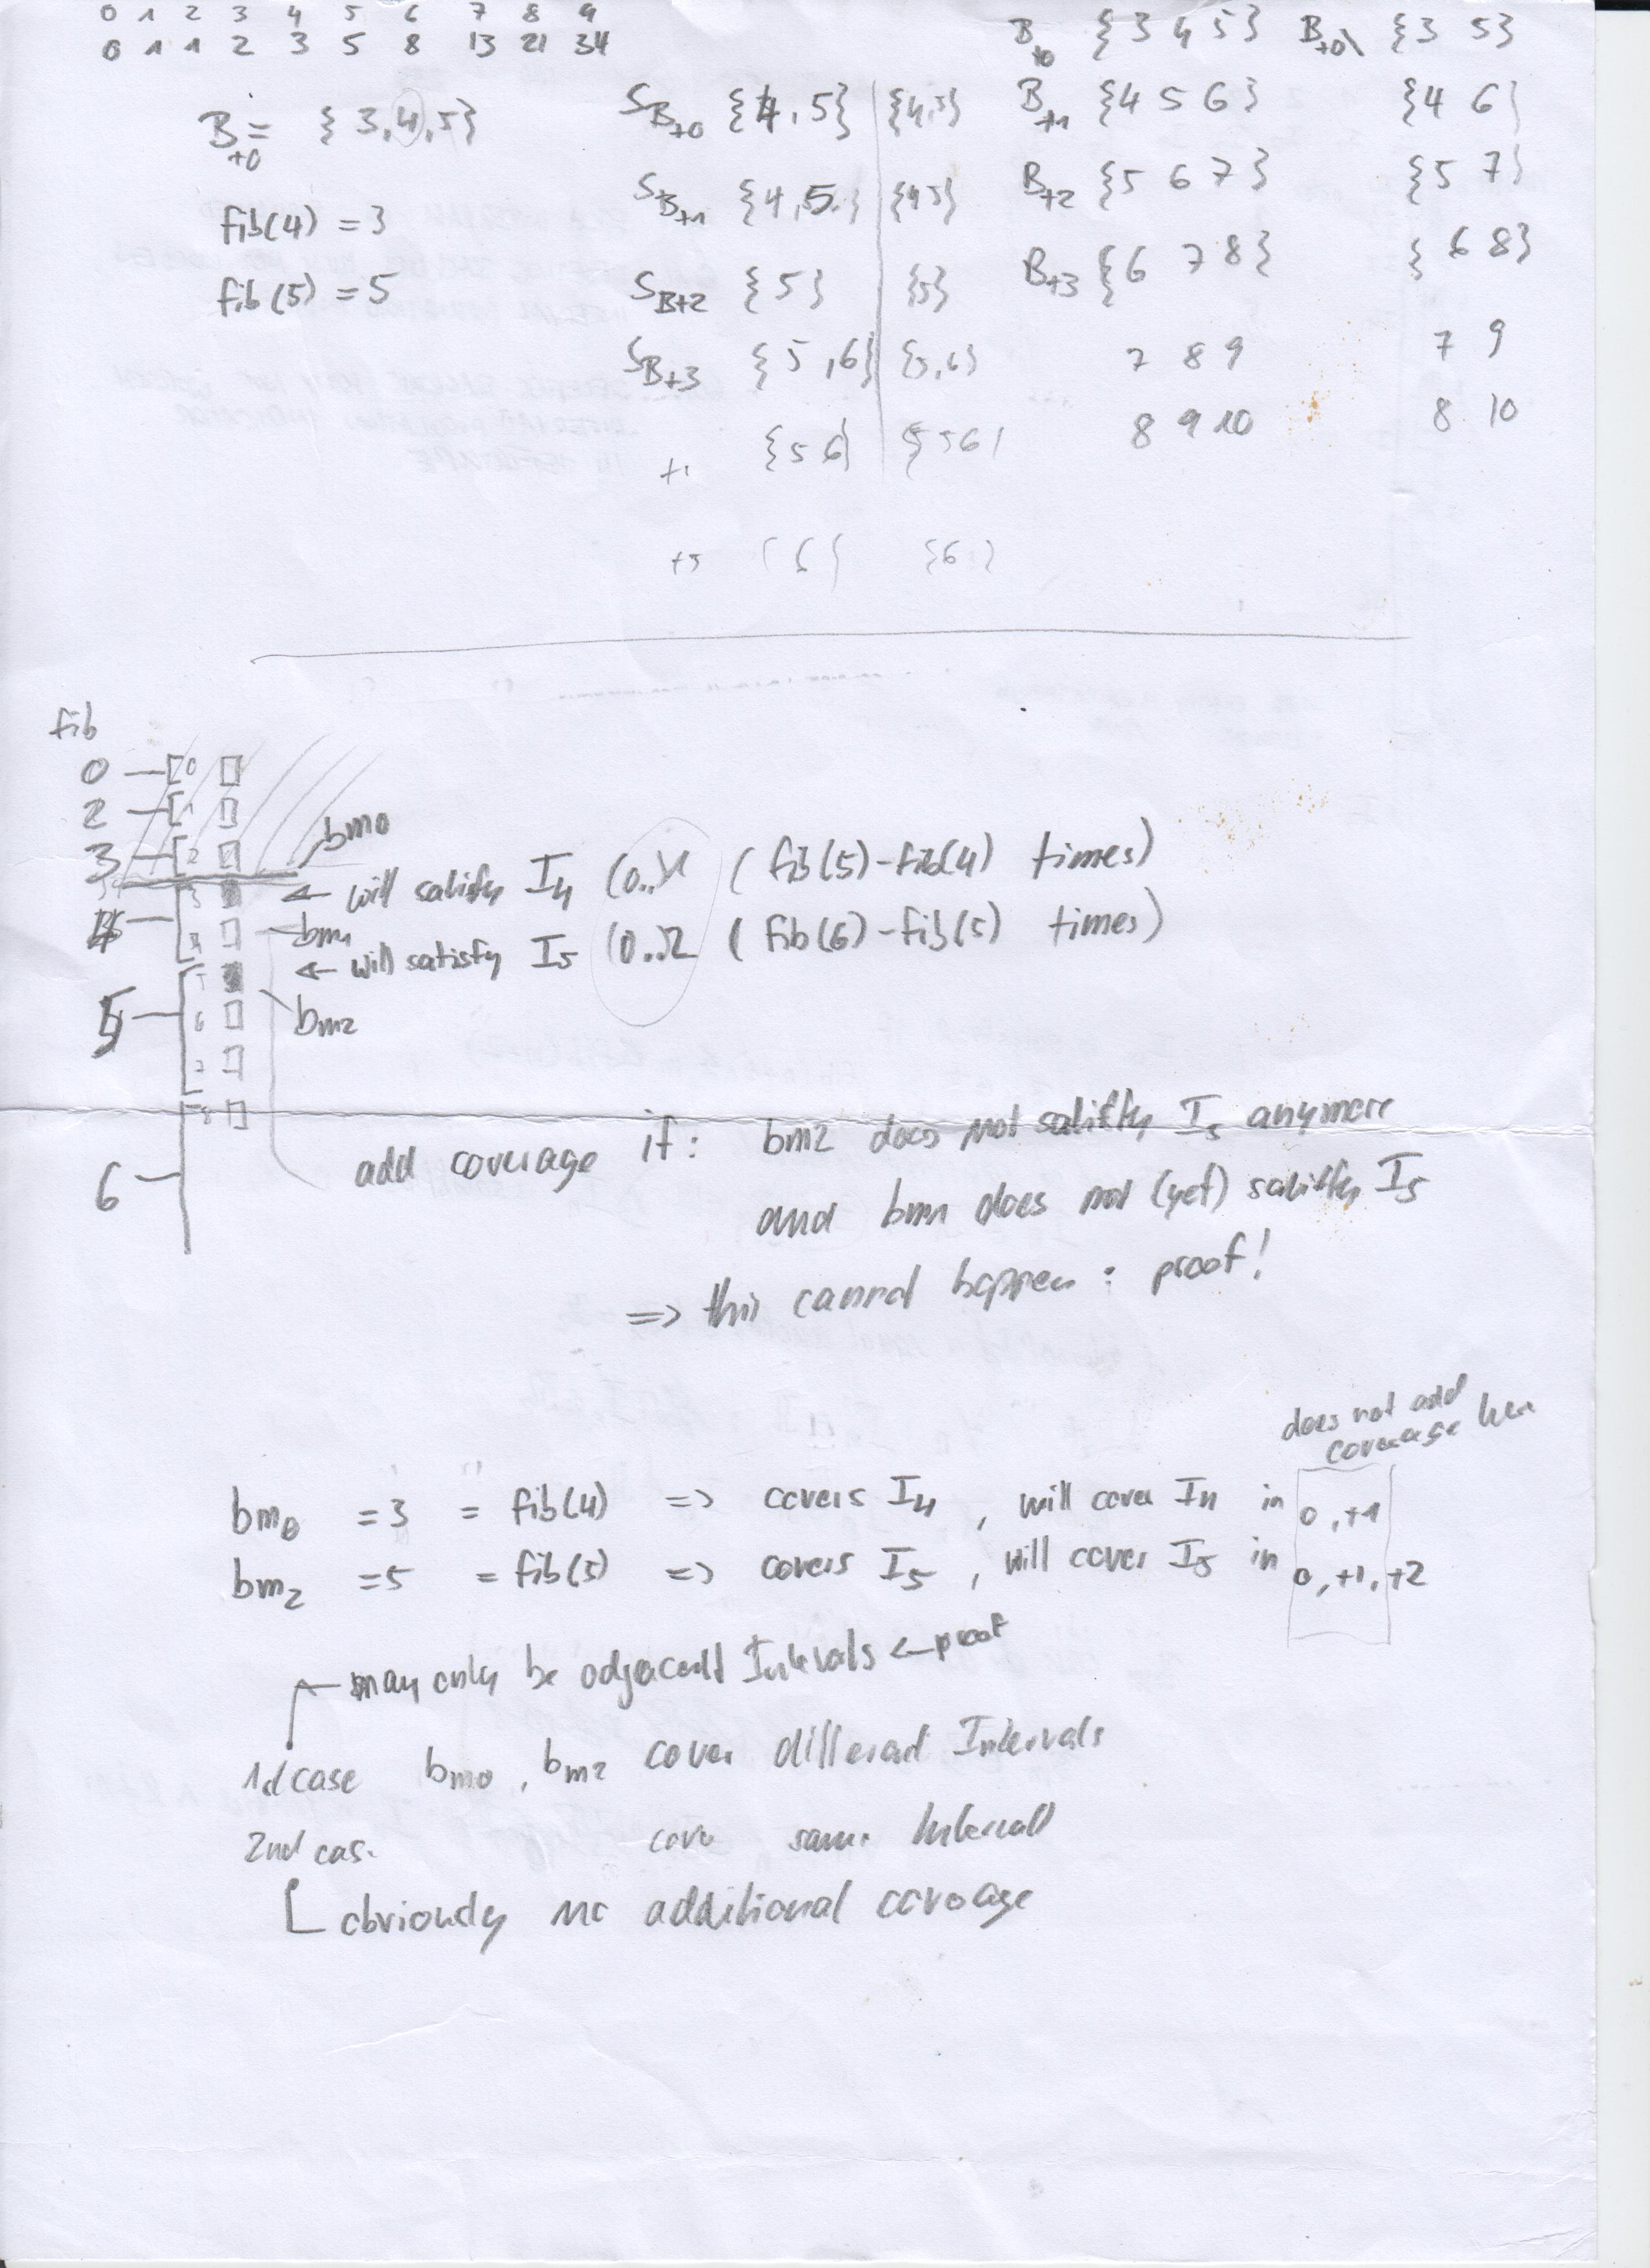 0 1 2 3 4 5 6 7 8 9
0 1 1 2 3 5 8 13 21 34
B+0 = {3,4,5}
fib(4) = 3
fib(5) = 5
SB+0 {4,5} {4,5}
SB+1 {4,5} {4 5}
SB+2 {5} {5}
SB+3 {5,6} {5,6}
{5 6} {5 6}
+5 {6} {6}
B+0 {3 4 5} B+0\ {3 5}
B+1 {4 5 6} {4 6}
B+2 {5 6 7} {5 7}
B+3 {6 7 8} {6 8}
7 8 9 7 9
8 9 10 8 10
fib
0
2
3
bm0
← will satisfy I4 (0..1 (fib(5)-fib(4) times)
bm1
← will satisfy I5 (0..2 (fib(6)-fib(5) times)
5
bm2
6
add coverage if: bm2 does not satisfy I5 anymore
and bm1 does not (yet) satisfy I5
=> this cannot happen : proof!
does not add
coverage here
bm0 = 3 = fib(4) => covers I4, will cover I4 in 0,+1
bm2 = 5 = fib(5) => covers I5, will cover I5 in 0,+1,+2
may only be adjacent Intervals ← proof
1st case bm0, bm2 cover different Intervals
2nd case cover same Intervall
obviously no additional coverage